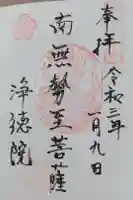 奉拝
令和三年
一月九日
南無勢至菩薩
浄徳院